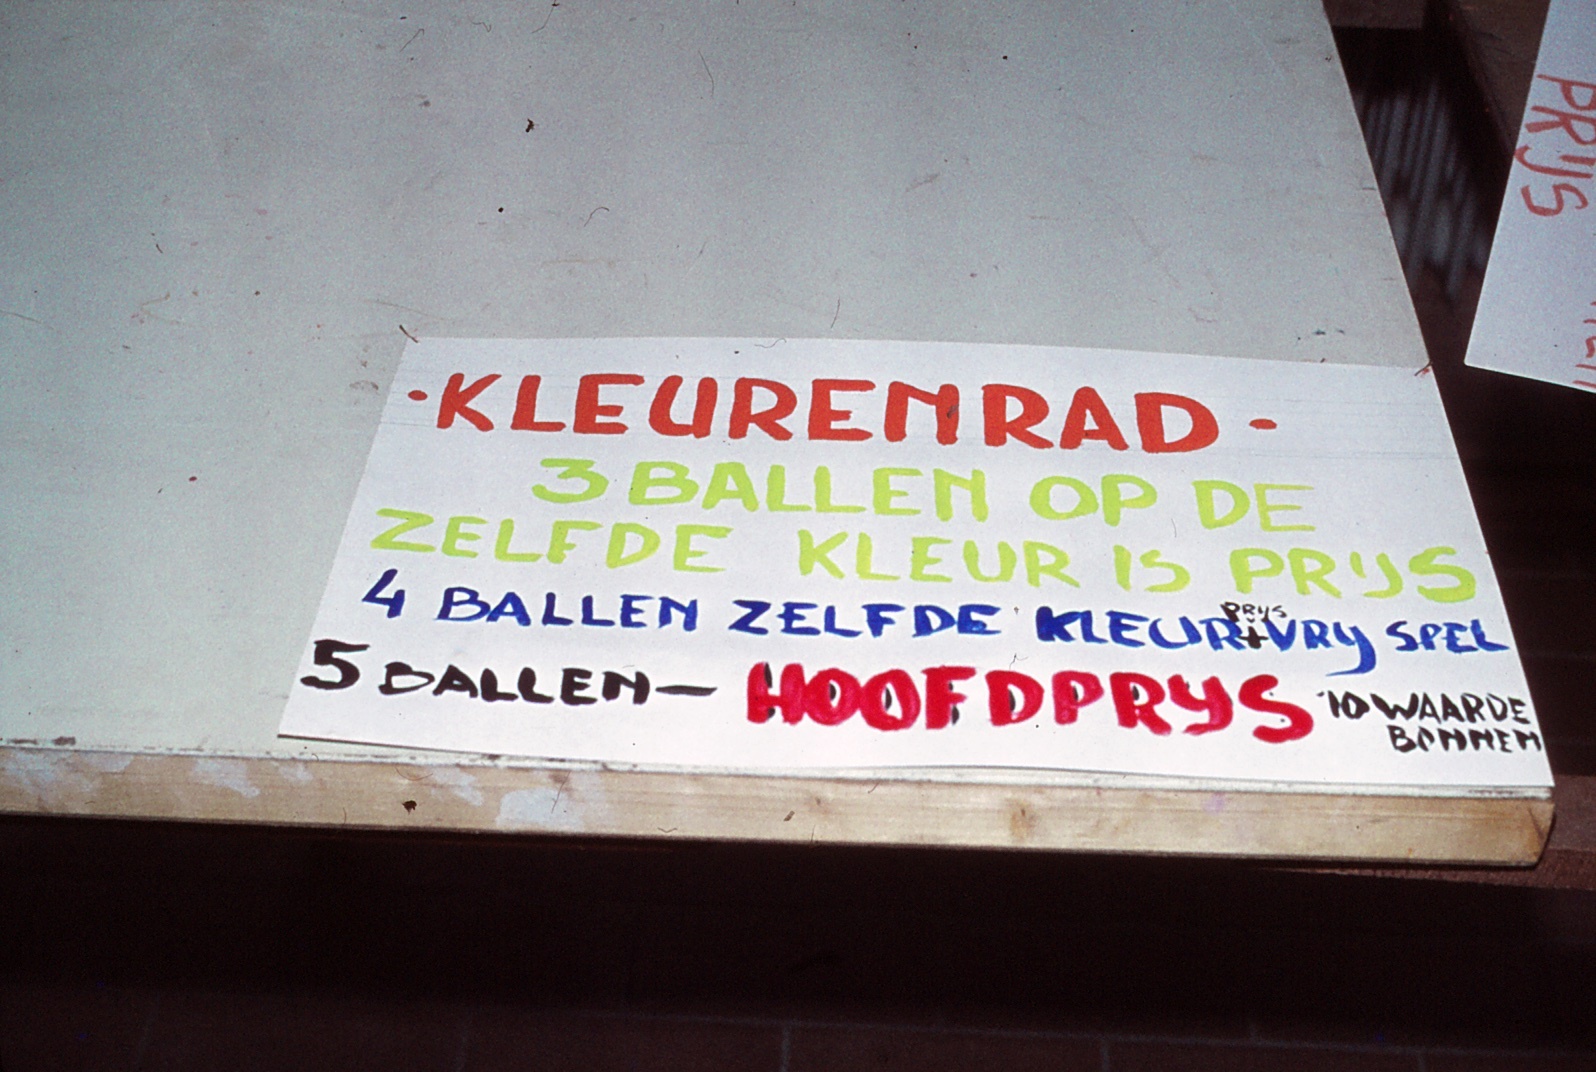 ·KLEURENRAD·
3 BALLEN OP DE
ZELFDE KLEUR IS PRIJS
4 BALLEN ZELFDE KLEUR PRIJS + VRY SPEL
5 BALLEN — HOOFDPRYS 10 WAARDE
BONNEN
PRIJS